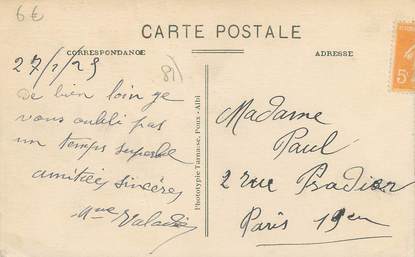 6€
CARTE POSTALE
CORRESPONDANCE
ADRESSE
27/1/29
81
De bien loin je
vous oubli pas
un temps superbe
amitiés sincères
Mme Valadié
Phototypie Tarnaise, Poux - Albi
5
Madame
Paul
2 rue Pradier
Paris 19em